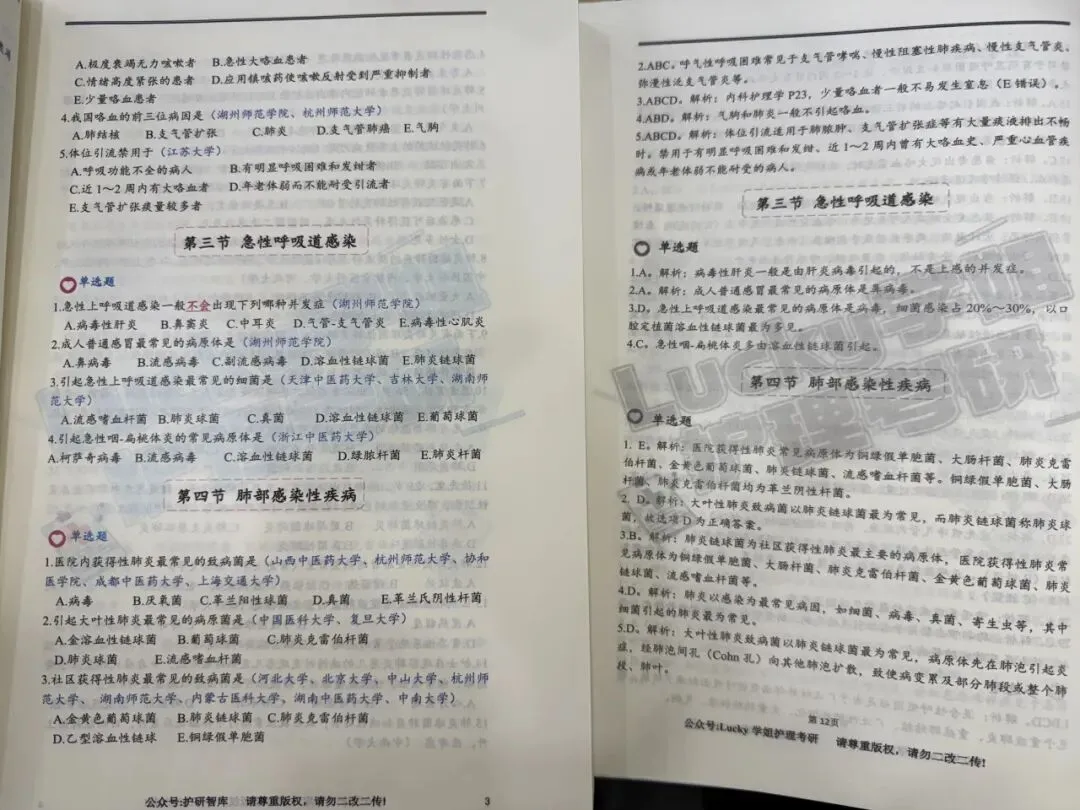 A.极度衰竭无力咳嗽者 B.急性大咯血患者
C.情绪高度紧张的患者 D.应用镇咳药使咳嗽反射受到严重抑制者
E.少量咯血患者
4.我国咯血的前三位病因是（湖州师范学院、杭州师范大学）
A.肺结核 B.支气管扩张 C.肺炎 D.支气管肺癌 E.气胸
5.体位引流禁用于（江苏大学）
A.呼吸功能不全的病人 B.有明显呼吸困难和发绀者
C.近 1～2 周内有大咯血者 D.年老体弱而不能耐受引流者
E.支气管扩张痰量较多者
第三节 急性呼吸道感染
单选题
1.急性上呼吸道感染一般不会出现下列哪种并发症（湖州师范学院）
A.病毒性肝炎 B.鼻窦炎 C.中耳炎 D.气管-支气管炎 E.病毒性心肌炎
2.成人普通感冒最常见的病原体是（湖州师范学院）
A.鼻病毒 B.流感病毒 C.副流感病毒 D.溶血性链球菌 E.肺炎链球菌
3.引起急性上呼吸道感染最常见的细菌是（天津中医药大学、吉林大学、湖南师
范大学）
A.流感嗜血杆菌 B.肺炎球菌 C.真菌 D.溶血性链球菌 E.葡萄球菌
4.引起急性咽-扁桃体炎的常见病原体是（浙江中医药大学）
A.柯萨奇病毒 B.流感病毒 C.溶血性链球菌 D.绿脓杆菌 E.肺炎杆菌
第四节 肺部感染性疾病
单选题
1.医院内获得性肺炎最常见的致病菌是（山西中医药大学、杭州师范大学、协和
医学院、成都中医药大学、上海交通大学）
A.病毒 B.厌氧菌 C.革兰阳性球菌 D.真菌 E.革兰氏阴性杆菌
2.引起大叶性肺炎最常见的病原菌是（中国医科大学、复旦大学）
A.金溶血性链球菌 B.葡萄球菌 C.肺炎克雷伯杆菌
D.肺炎球菌 E.流感嗜血杆菌
3.社区获得性肺炎最常见的致病菌是（河北大学、北京大学、中山大学、杭州师
范大学、 湖南师范大学、内蒙古医科大学、湖南中医药大学、中南大学）
A.金黄色葡萄球菌 B.肺炎链球菌 C.肺炎克雷伯杆菌
D.乙型溶血性链球 E.铜绿假单胞菌
公众号:护研智库 请尊重版权，请勿二改二传!
3
2.ABC。呼气性呼吸困难常见于支气管哮喘、慢性阻塞性肺疾病、慢性支气管炎、
弥漫性泛支气管炎等。
3.ABCD。解析：内科护理学 P23，少量咯血者一般不易发生窒息（E 错误）。
4.ABD。解析：气胸和肺炎一般不引起咯血。
5.ABCD。解析：体位引流适用于肺脓肿、支气管扩张症等有大量痰液排出不畅
时。禁用于有明显呼吸困难和发绀、近 1～2 周内曾有大咯血史、严重心血管疾
病或年老体弱不能耐受的病人。
第三节 急性呼吸道感染
单选题
1.A。解析：病毒性肝炎一般是由肝炎病毒引起的，不是上感的并发症。
2.A。解析：成人普通感冒最常见的病原体是鼻病毒。
3.D。急性上呼吸道感染最常见的病原体是病毒，细菌感染占 20%～30%，以口
腔定植菌溶血性链球菌最为多见。
4.C。急性咽-扁桃体炎多由溶血性链球菌引起。
第四节 肺部感染性疾病
单选题
1. E。解析：医院获得性肺炎常见病原体为铜绿假单胞菌、大肠杆菌、肺炎克雷
伯杆菌、金黄色葡萄球菌、肺炎链球菌、流感嗜血杆菌等。铜绿假单胞菌、大肠
杆菌、肺炎克雷伯杆菌均为革兰阴性杆菌。
2. D。解析：大叶性肺炎致病菌以肺炎链球菌最为常见，而肺炎链球菌称肺炎球
菌，故选项 D 为正确答案。
3.B。解析：肺炎链球菌为社区获得性肺炎最主要的病原体，医院获得性肺炎常
见病原体为铜绿假单胞菌、大肠杆菌、肺炎克雷伯杆菌、金黄色葡萄球菌、肺炎
链球菌、流感嗜血杆菌等。
4.D。解析：肺炎以感染为最常见病因，如细菌、病毒、真菌、寄生虫等，其中
细菌引起的肺炎最为常见。
5.D。解析：大叶性肺炎致病菌以肺炎链球菌最为常见，病原体先在肺泡引起炎
症，经肺泡间孔（Cohn 孔）向其他肺泡扩散，致使病变累及部分肺段或整个肺
段、肺叶。
第 12页
公众号:Lucky 学姐护理考研 请尊重版权，请勿二改二传!
Lucky学姐
护理考研